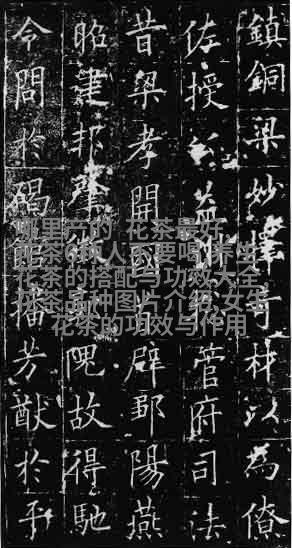 鎮銅梁妙擇奇材以為僚
佐授公益州管府司法
昔梁孝開國首辟鄒陽燕
昭建邦肇徵隗故得馳
令問於碣館播芳猷於平
哪里产的 花茶最好,
花茶6种人不要喝,养生
花茶的搭配与功效大全
花茶品种图片介绍,女生
花茶的功效与作用